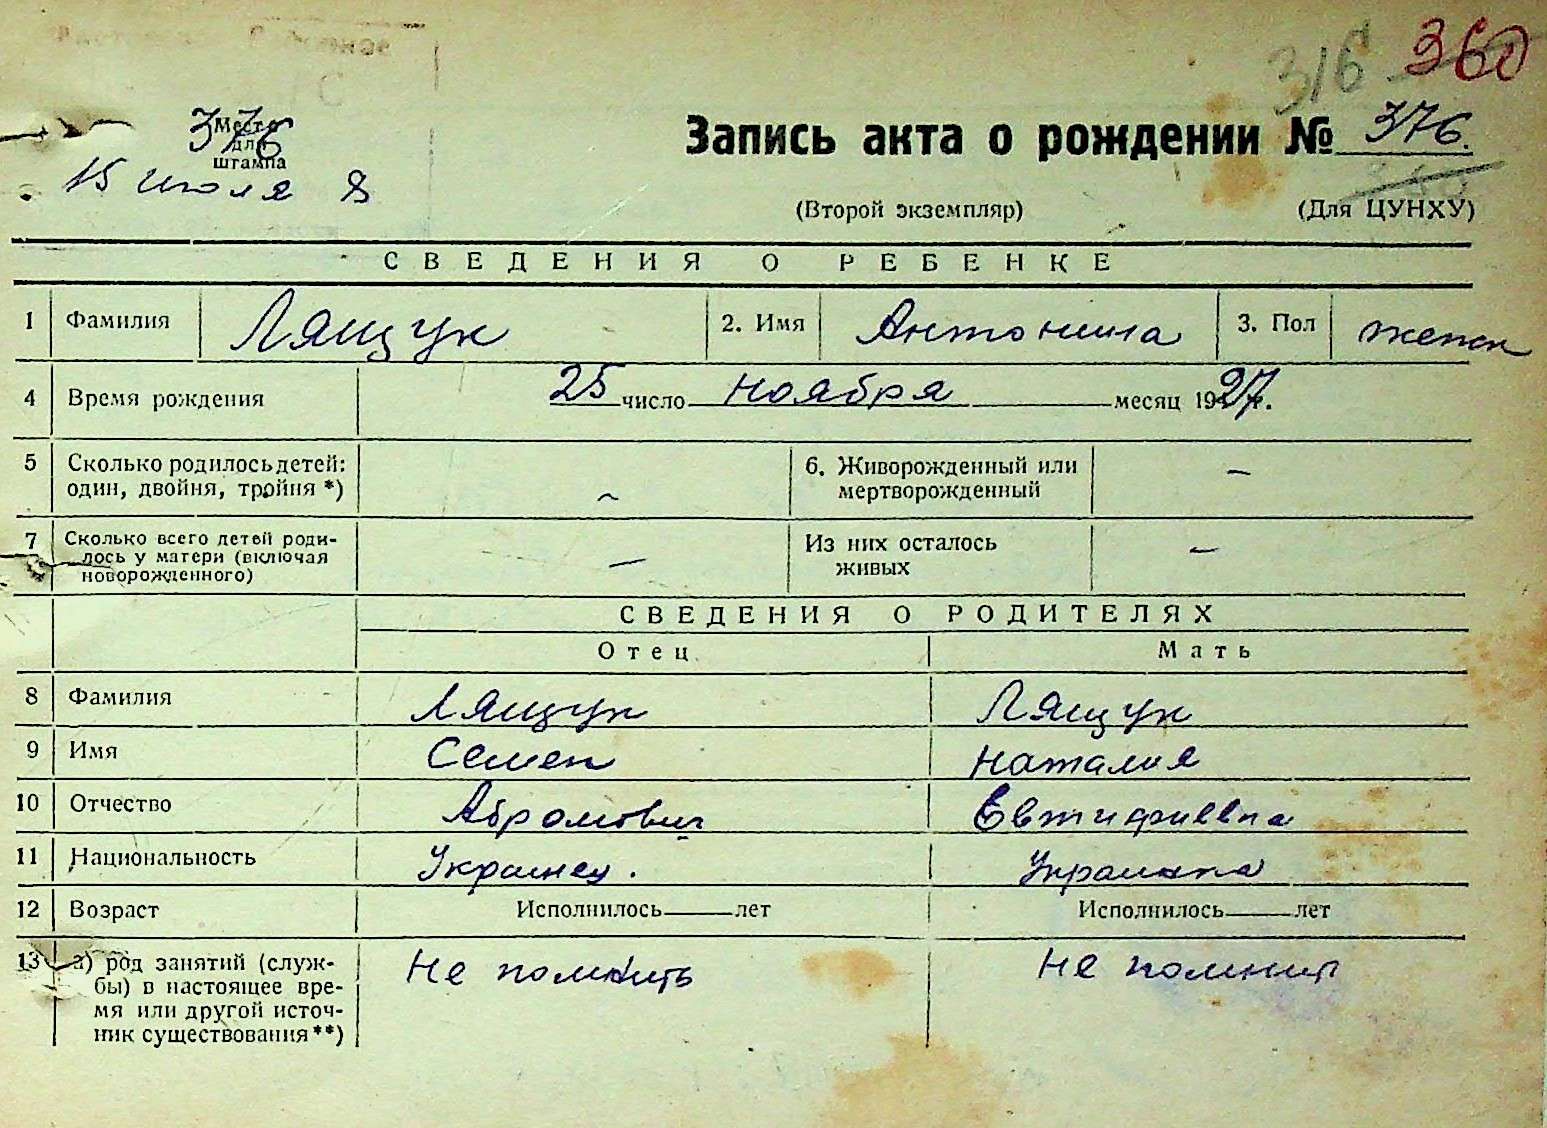 316 360
376
Место
для
штампа
15 июля 8
Запись акта о рождении № 376.
(Второй экземпляр) (Для ЦУНХУ)
СВЕДЕНИЯ О РЕБЕНКЕ
1 Фамилия Лящук 2. Имя Антонина 3. Пол женск
4 Время рождения 25 число ноября месяц 1927г.
5 Сколько родилось детей: один, двойня, тройня *) — 6. Живорожденный или мертворожденный —
7 Сколько всего детей роди-
лось у матери (включая
новорожденного) — Из них осталось живых —
СВЕДЕНИЯ О РОДИТЕЛЯХ
Отец Мать
8 Фамилия Лящук Лящук
9 Имя Семен Наталия
10 Отчество Абрамович Евтифиевна
11 Национальность Украинец. Украинка
12 Возраст Исполнилось лет Исполнилось лет
13 а) род занятий (служ- Не помнить Не помнит
бы) в настоящее вре-
мя или другой источ-
ник существования**)